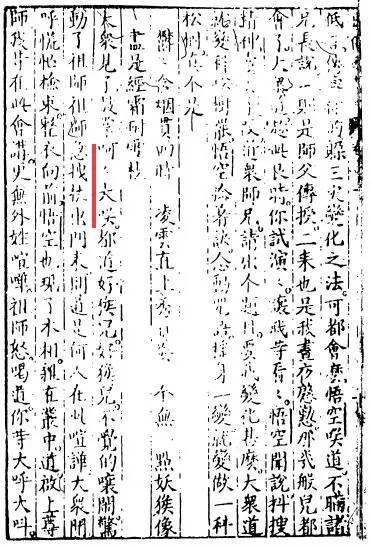 低言傳與你的躲三災變化之法。可都會麼。悟空笑道。不瞞諸
兄長說。一則是師父傳授。二來也是我晝夜慇懃。那幾般兒都
會了。大眾道。趁此良時。你試演演。讓我等看看。悟空聞說。抖搜
精神。道。眾師兄。請出個題目。要我變化甚麼。大眾道
就變棵松樹罷。悟空捻着訣。念動咒語。搖身一變。就變做一科
松樹。真個是
鬱鬱含烟貫四時 凌雲直上秀貞姿 全無一點妖猴像
盡是經霜耐雪枝
大眾見了。鼓掌呵呵大笑。都道。好猴兒。好猴兒。不覺的嚷鬧。驚
動了祖師。祖師急拽杖出門來問道。是何人在此喧譁。大眾聞
呼。慌忙檢束。整衣向前。悟空也現了本相。雜在叢中。道。啟上尊
師。我等在此會講。更無外姓喧譁。祖師怒喝道。你等大呼大叫